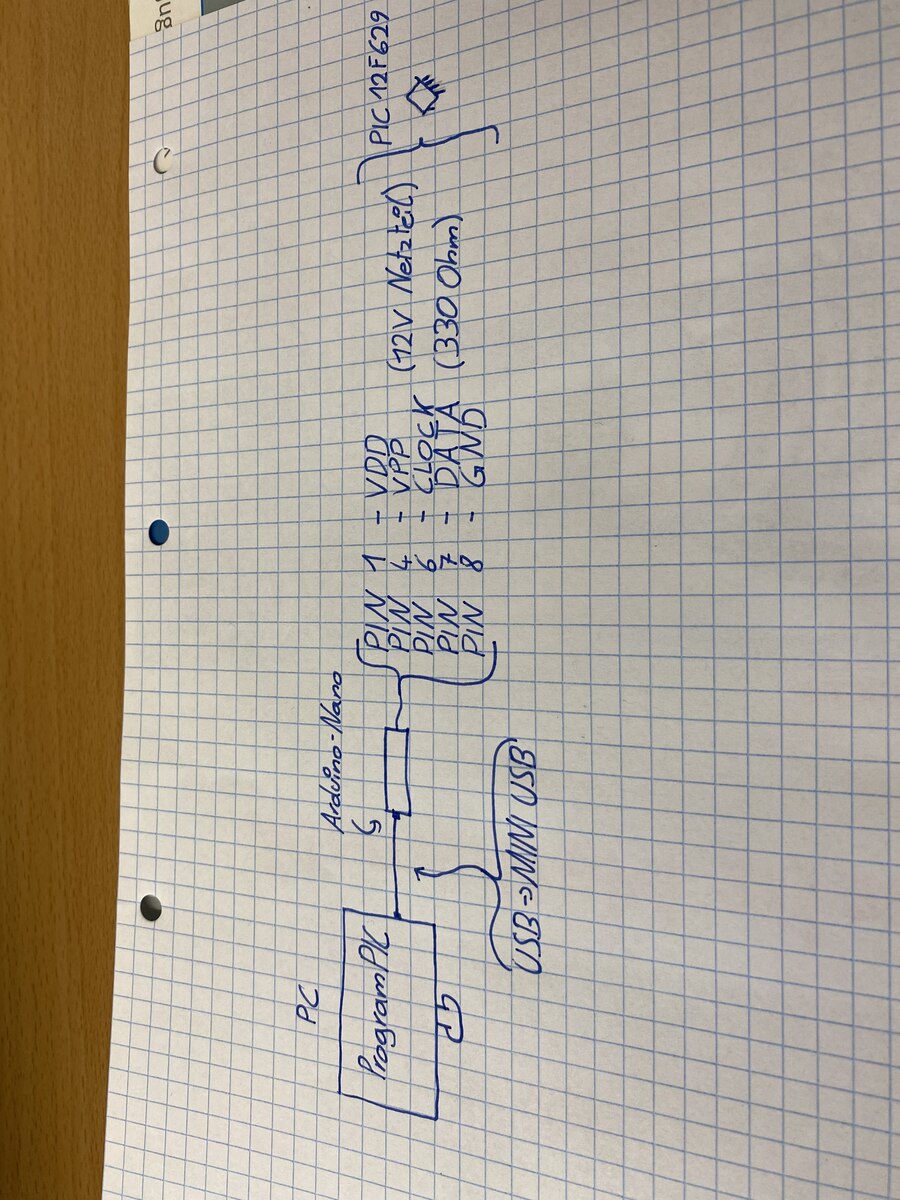 PC
ProgramPIC
Arduino-Nano
USB => MINI USB
PIN 1 - VDD
PIN 4 - VPP (12V Netzteil)
PIN 6 - CLOCK
PIN 7 - DATA (330 Ohm)
PIN 8 - GND
PIC 12F629